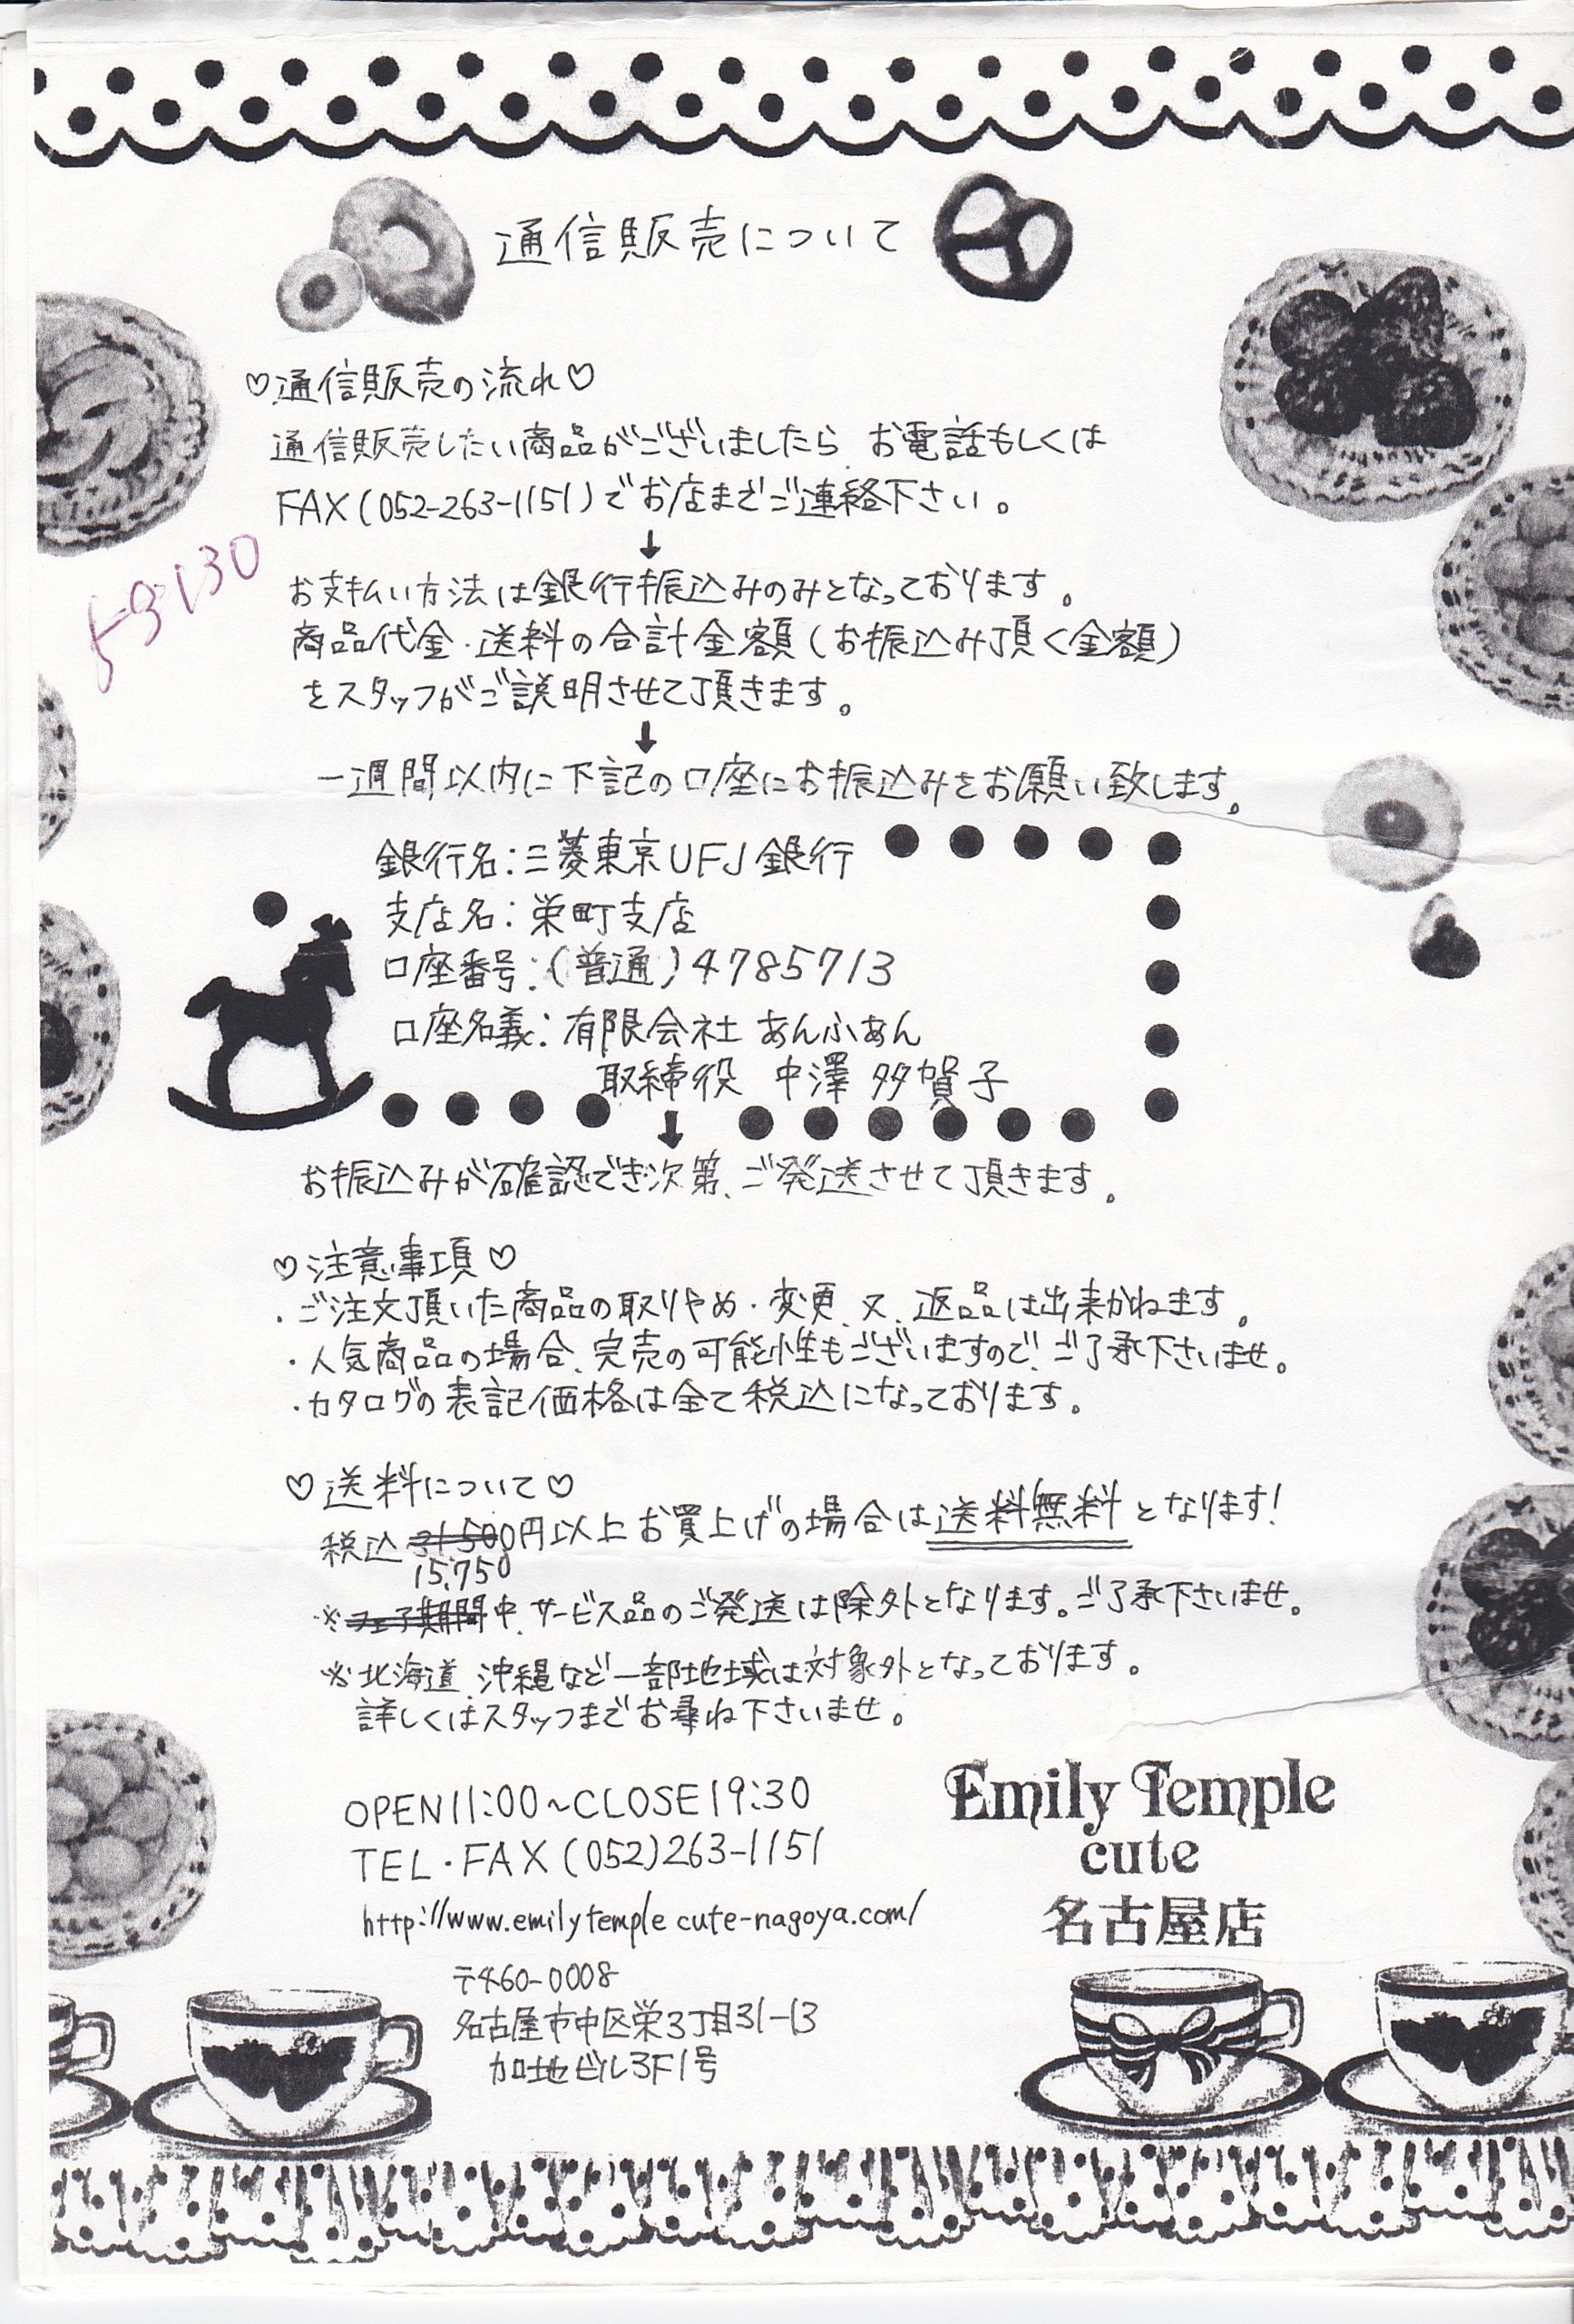 通信販売について
♡通信販売の流れ♡
通信販売したい商品がございましたら、お電話もしくは
FAX(052-263-1151)でお店までご連絡下さい。
↓
お支払い方法は銀行振込みのみとなっております。
商品代金・送料の合計金額(お振込み頂く金額)
をスタッフがご説明させて頂きます。
↓
一週間以内に下記の口座にお振込みをお願い致します。
銀行名:三菱東京UFJ銀行
支店名:栄町支店
口座番号:(普通)4785713
口座名義:有限会社 あんふぁん
取締役 中澤 多賀子
↓
お振込みが確認でき次第、ご発送させて頂きます。
♡注意事項♡
・ご注文頂いた商品の取りやめ・変更、又、返品は出来かねます。
・人気商品の場合、完売の可能性もございますので、ご了承下さいませ。
・カタログの表記価格は全て税込になっております。
♡送料について♡
税込31500円以上お買上げの場合は送料無料となります!
15,750
※フェア期間中、サービス品のご発送は除外となります。ご了承下さいませ。
※北海道、沖縄など一部地域は対象外となっております。
詳しくはスタッフまでお尋ね下さいませ。
OPEN11:00~CLOSE19:30
TEL・FAX(052)263-1151
http://www.emilytemple cute-nagoya.com/
〒460-0008
名古屋市中区栄3丁目31-13
加地ビル3F1号
Emily Temple
cute
名古屋店